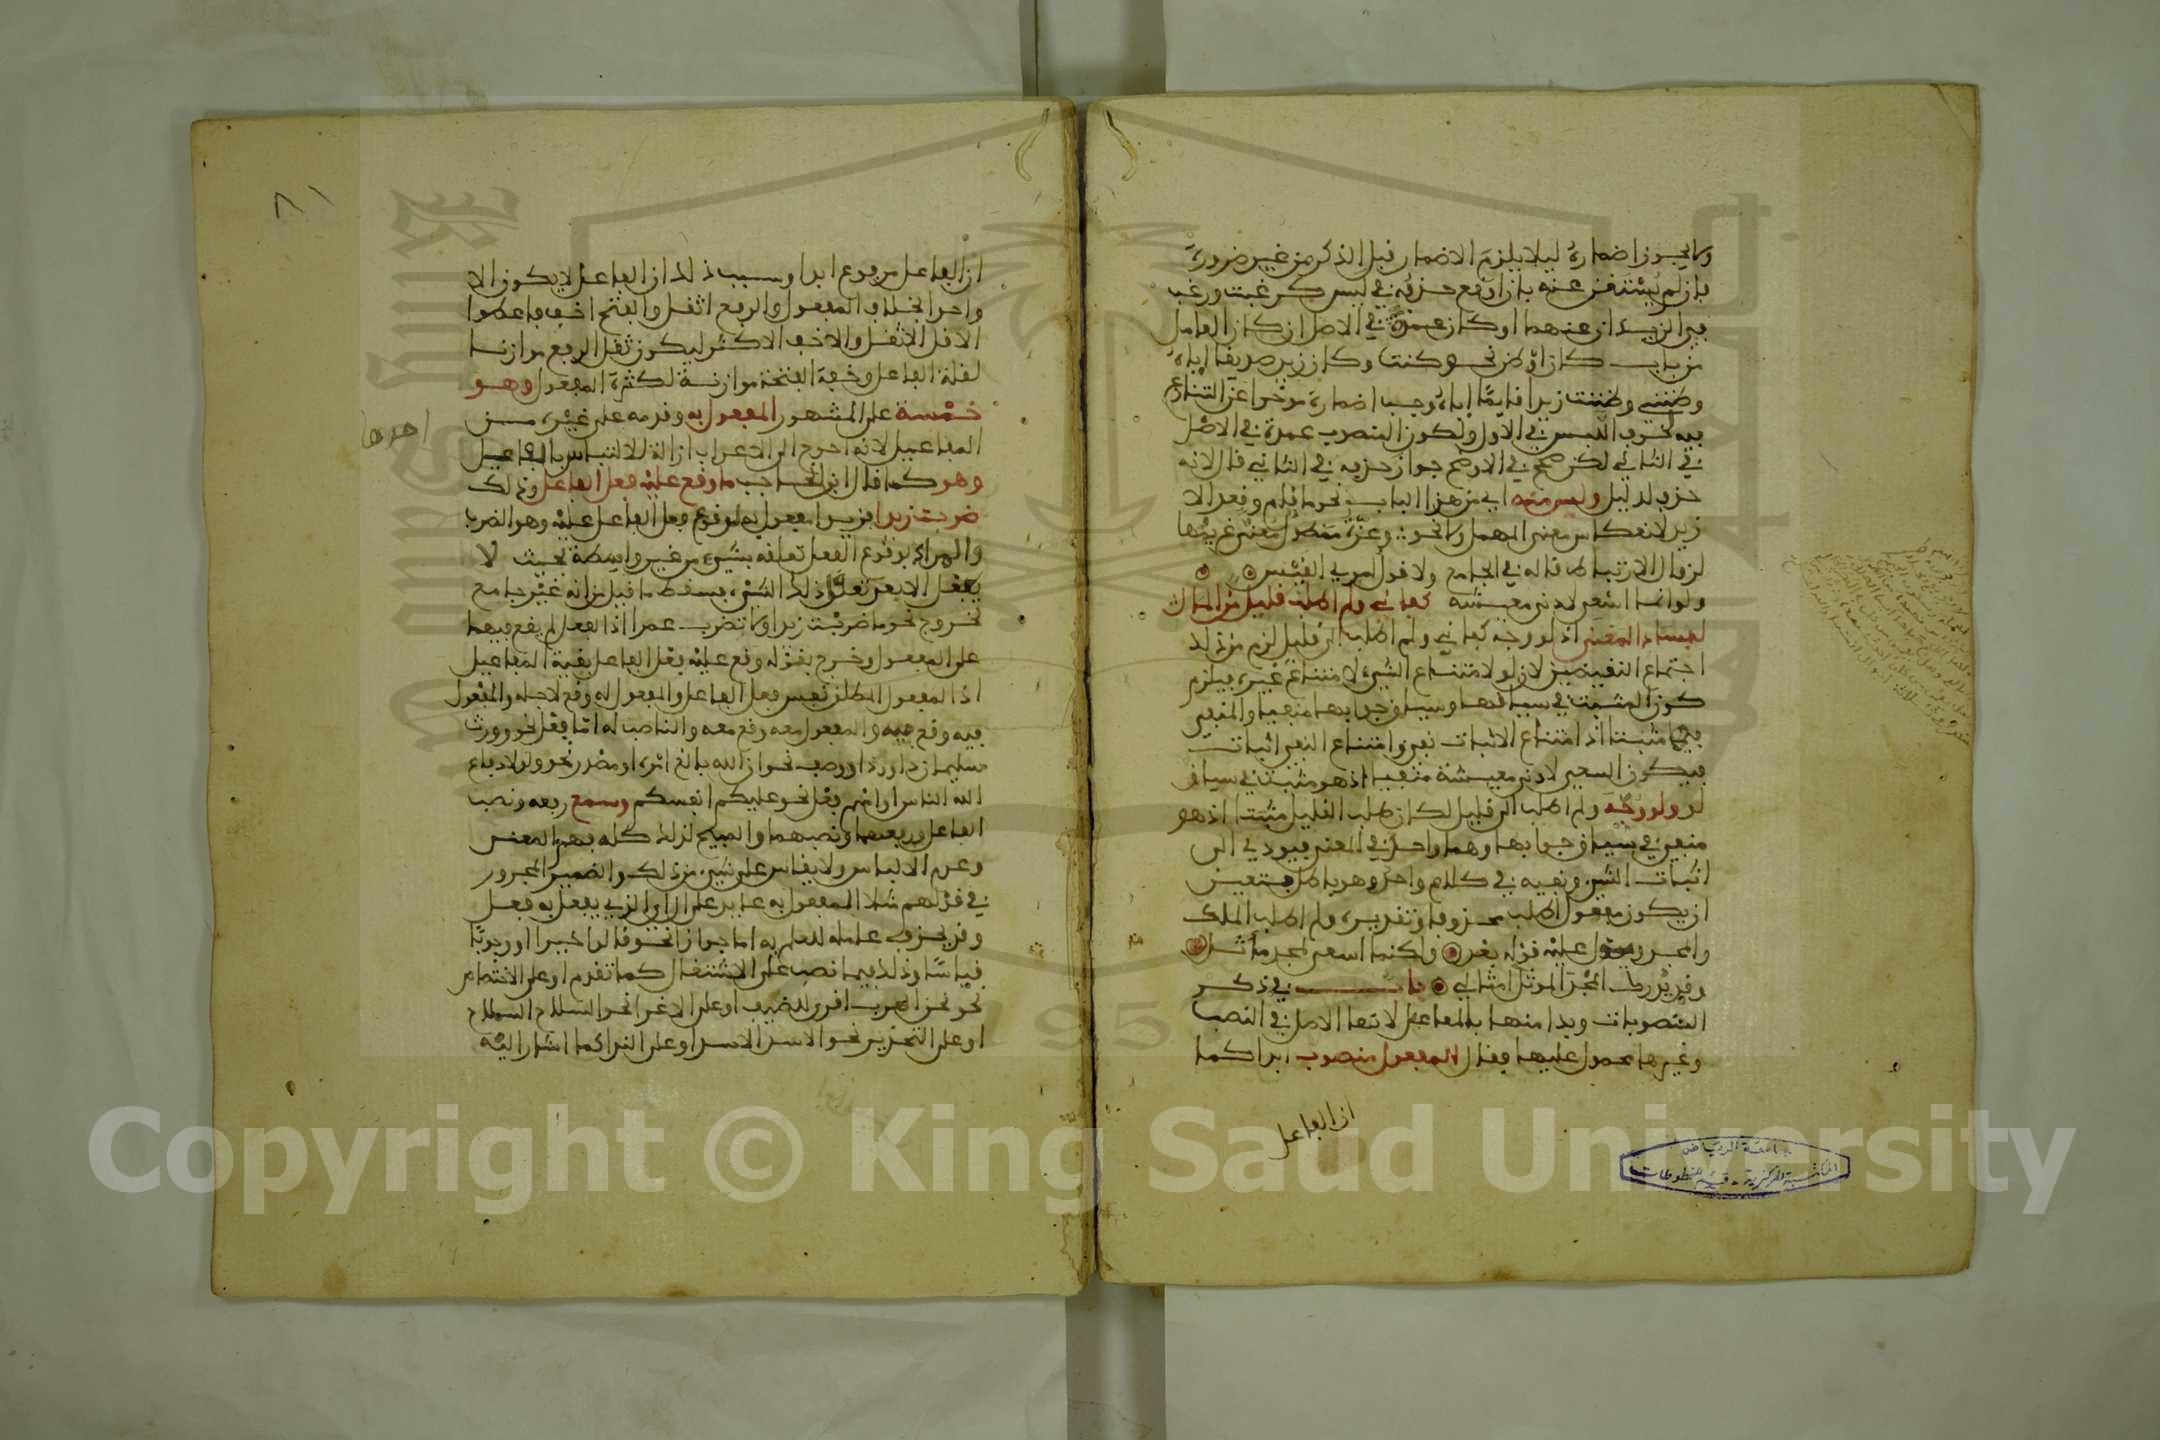 ولا يجوز اضماره ليلا يلزم الاضمار قبل الذكر من غير ضرورة
فان لم يستغن عنه بان اوقع حذفه في لبس كرغبت ورغب
في الزيدان عنهما او كان عمدة في الاصل ان كان العامل
من باب كان او ظن نحو كنت وكان زيد صديقا اياه
وظنني وظننت زيدا قايما اياه وجب اضماره موخرا عن التنازع
فيه لخوف اللبس في الاول ولكون المنصوب عمدة في الاصل
في الثاني لكن صحح في الاوضح جواز حذفه في الثاني قال لانه
حذف لدليل وليس منه اي من هذا الباب نحو ما قام وقعد الا
زيد لانعكاس معنى المهمل ولا نحو وعزة ممطول معنى غريمها
لزوال الارتباط قاله في الجامع ولا قول امرئ القيس
ولو انما اسعى لادنى معيشة كفاني ولم اطلب قليل من المال
لفساد المعنى اذ لو وجه كفاني ولم اطلب الى قليل لزم من ذلك
اجتماع النقيضين لان لو لامتناع الشيء لامتناع غيره فيلزم
كون المثبت في سياقها وسياق جوابها منفيا والمنفي
فيهما مثبتا اذ امتناع الاثبات نفي وامتناع النفي اثبات
فيكون السعي لادنى معيشة منفيا اذ هو مثبت في سياق
لو ولو وجه ولم اطلب الى قليل لكان طلب القليل مثبتا اذ هو
منفي في سياق جوابها وهما واحد في المعنى فيودي الى
اثبات الشيء ونفيه في كلام واحد وهو باطل فتعين
ان يكون مفعول اطلب محذوفا وتقديره ولم اطلب الملك
والمجد ويدل عليه قوله بعد ولكنما اسعى لمجد موثل
وقد يدرك المجد الموثل امثالي باب في ذكر
المنصوبات وبدا منها بالمفاعيل لانها الاصل في النصب
وغيرها محمول عليها فقال المفعول منصوب ابدا كما
ان الفاعل
جامعة الرياض
المكتبة المركزية - قسم المخطوطات
ان الفاعل مرفوع ابدا وسبب ذلك ان الفاعل لا يكون الا
واحدا بخلاف المفعول والرفع اثقل والفتح اخف فاعطوا
الاقل الاثقل والاخف الاكثر ليكون ثقل الرفع موازنا
لقلة الفاعل وخفة الفتحة موازنة لكثرة المفعول وهو
خمسة على المشهور المفعول به وقدمه على غيره من
احدها
المفاعيل لانه احوج الى الاعراب ازالة للالتباس بالفاعل
وهو كما قال ابن الحاجب ما وقع عليه فعل الفاعل وذلك
ضربت زيدا فزيدا مفعول به لوقوع فعل الفاعل عليه وهو الضرب
والمراد بوقوع الفعل تعلقه بشيء من غير واسطة بحيث لا
يعقل الا بعد تعقل ذلك الشيء فسقط ما قيل من انه غير جامع
لخروج نحو ما ضربت زيدا ولا تضرب عمرا اذ الفعل لم يقع فيهما
على المفعول وخرج بقوله وقع عليه فعل الفاعل بقية المفاعيل
اذ المفعول المطلق نفس فعل الفاعل والمفعول له وقع لاجله والمفعول
فيه وقع فيه والمفعول معه وقع معه والناصب له اما فعل نحو وورث
سليمان داود او وصف نحو ان الله بالغ امره او مصدر نحو ولولا دفاع
الله الناس او اسم فعل نحو عليكم انفسكم وسمع رفعه ونصب
الفاعل ورفعهما ونصبهما والمبيح لذلك كله فهم المعنى
وعدم الالباس ولا يقاس على شيء من ذلك والضمير المجرور
في قولهم مثلا المفعول به عايد على ال اي الذي يفعل به فعل
وقد يحذف عامله للعلم به اما جوازا نحو قالوا خيرا او وجوبا
قياسا وذلك فيما نصب على الاشتغال كما تقدم او على الاختصاص
نحو نحن العرب اقرى للضيف او على الاغرا نحو السلاح السلاح
او على التحذير نحو الاسد الاسد او على الندا كما اشار اليه
Copyright © King Saud University